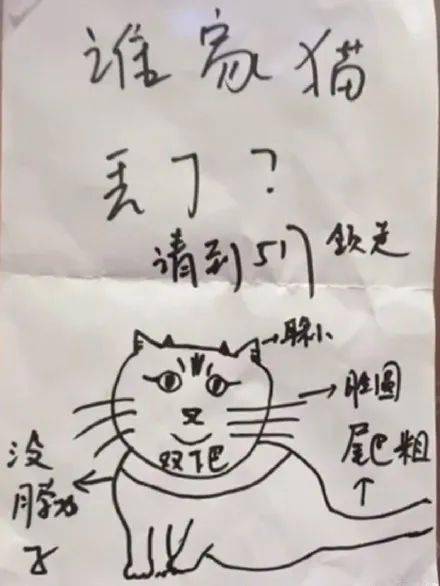 谁家猫
丢了？
请到517 领走
小
脸圆
尾巴粗
双下巴
没
脖
子